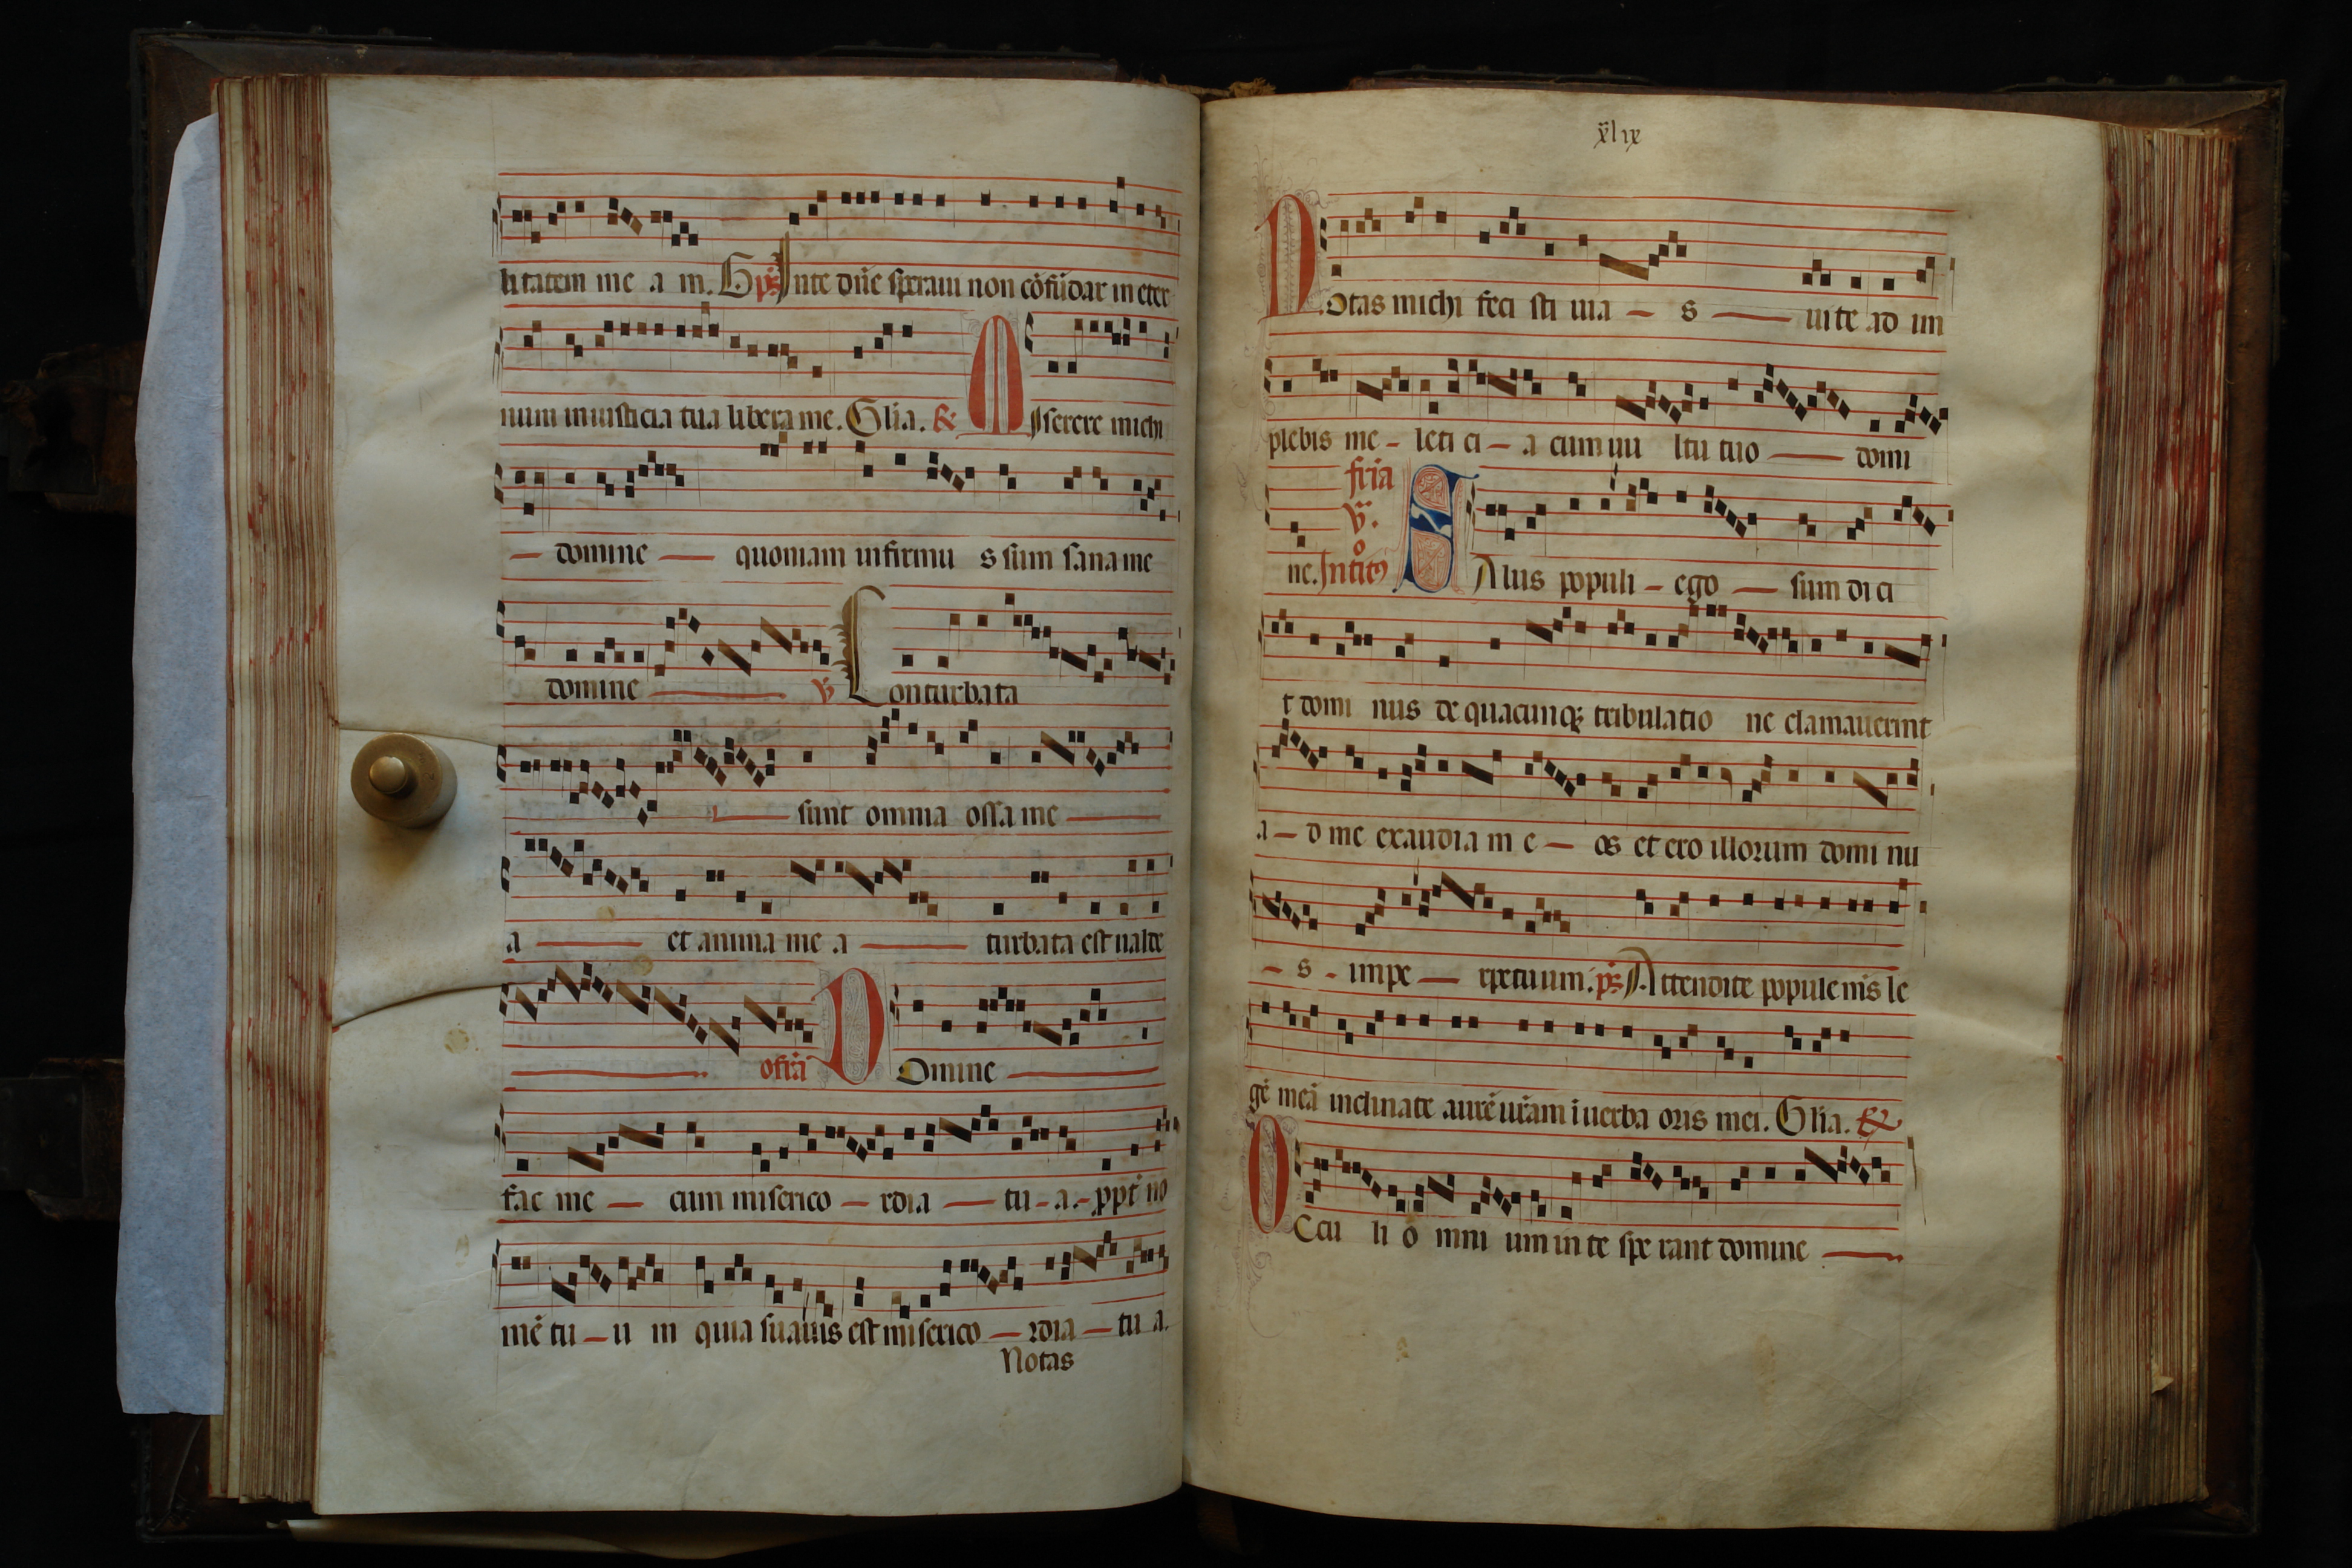 litatem me a m. G ps In te dn̄e speraui non cōfūdar in eter
num in iusticia tua libera me. Glīa. R M Iserere michi
domine quoniam infirmu s sum sana me
domine v̄ Conturbata
sunt omnia ossa me
a et anima me a turbata est ualde
offr̄a D Omine
fac me cum miserico rdia tu a ppt̄ no
mē tu u m quia suauis est miserico rdia tu a.
Notas
xlix
N Otas michi feci sti uia s uite ad im
plebis me leti ci a cum uu ltu tuo domi
fria v.
ne. Introitꝰ S Alus populi ego sum di ci
t domi nus de quacunqꝫ tribulatio ne clamauerint
a d me exaudia m e os et ero illorum domi nu
s impe rpetuum. ps Attendite popule m̄s le
gē meā inclinate aurē ur̄am ī uerba oris mei. Glīa. R
O Ccu li o mni um in te spe rant domine